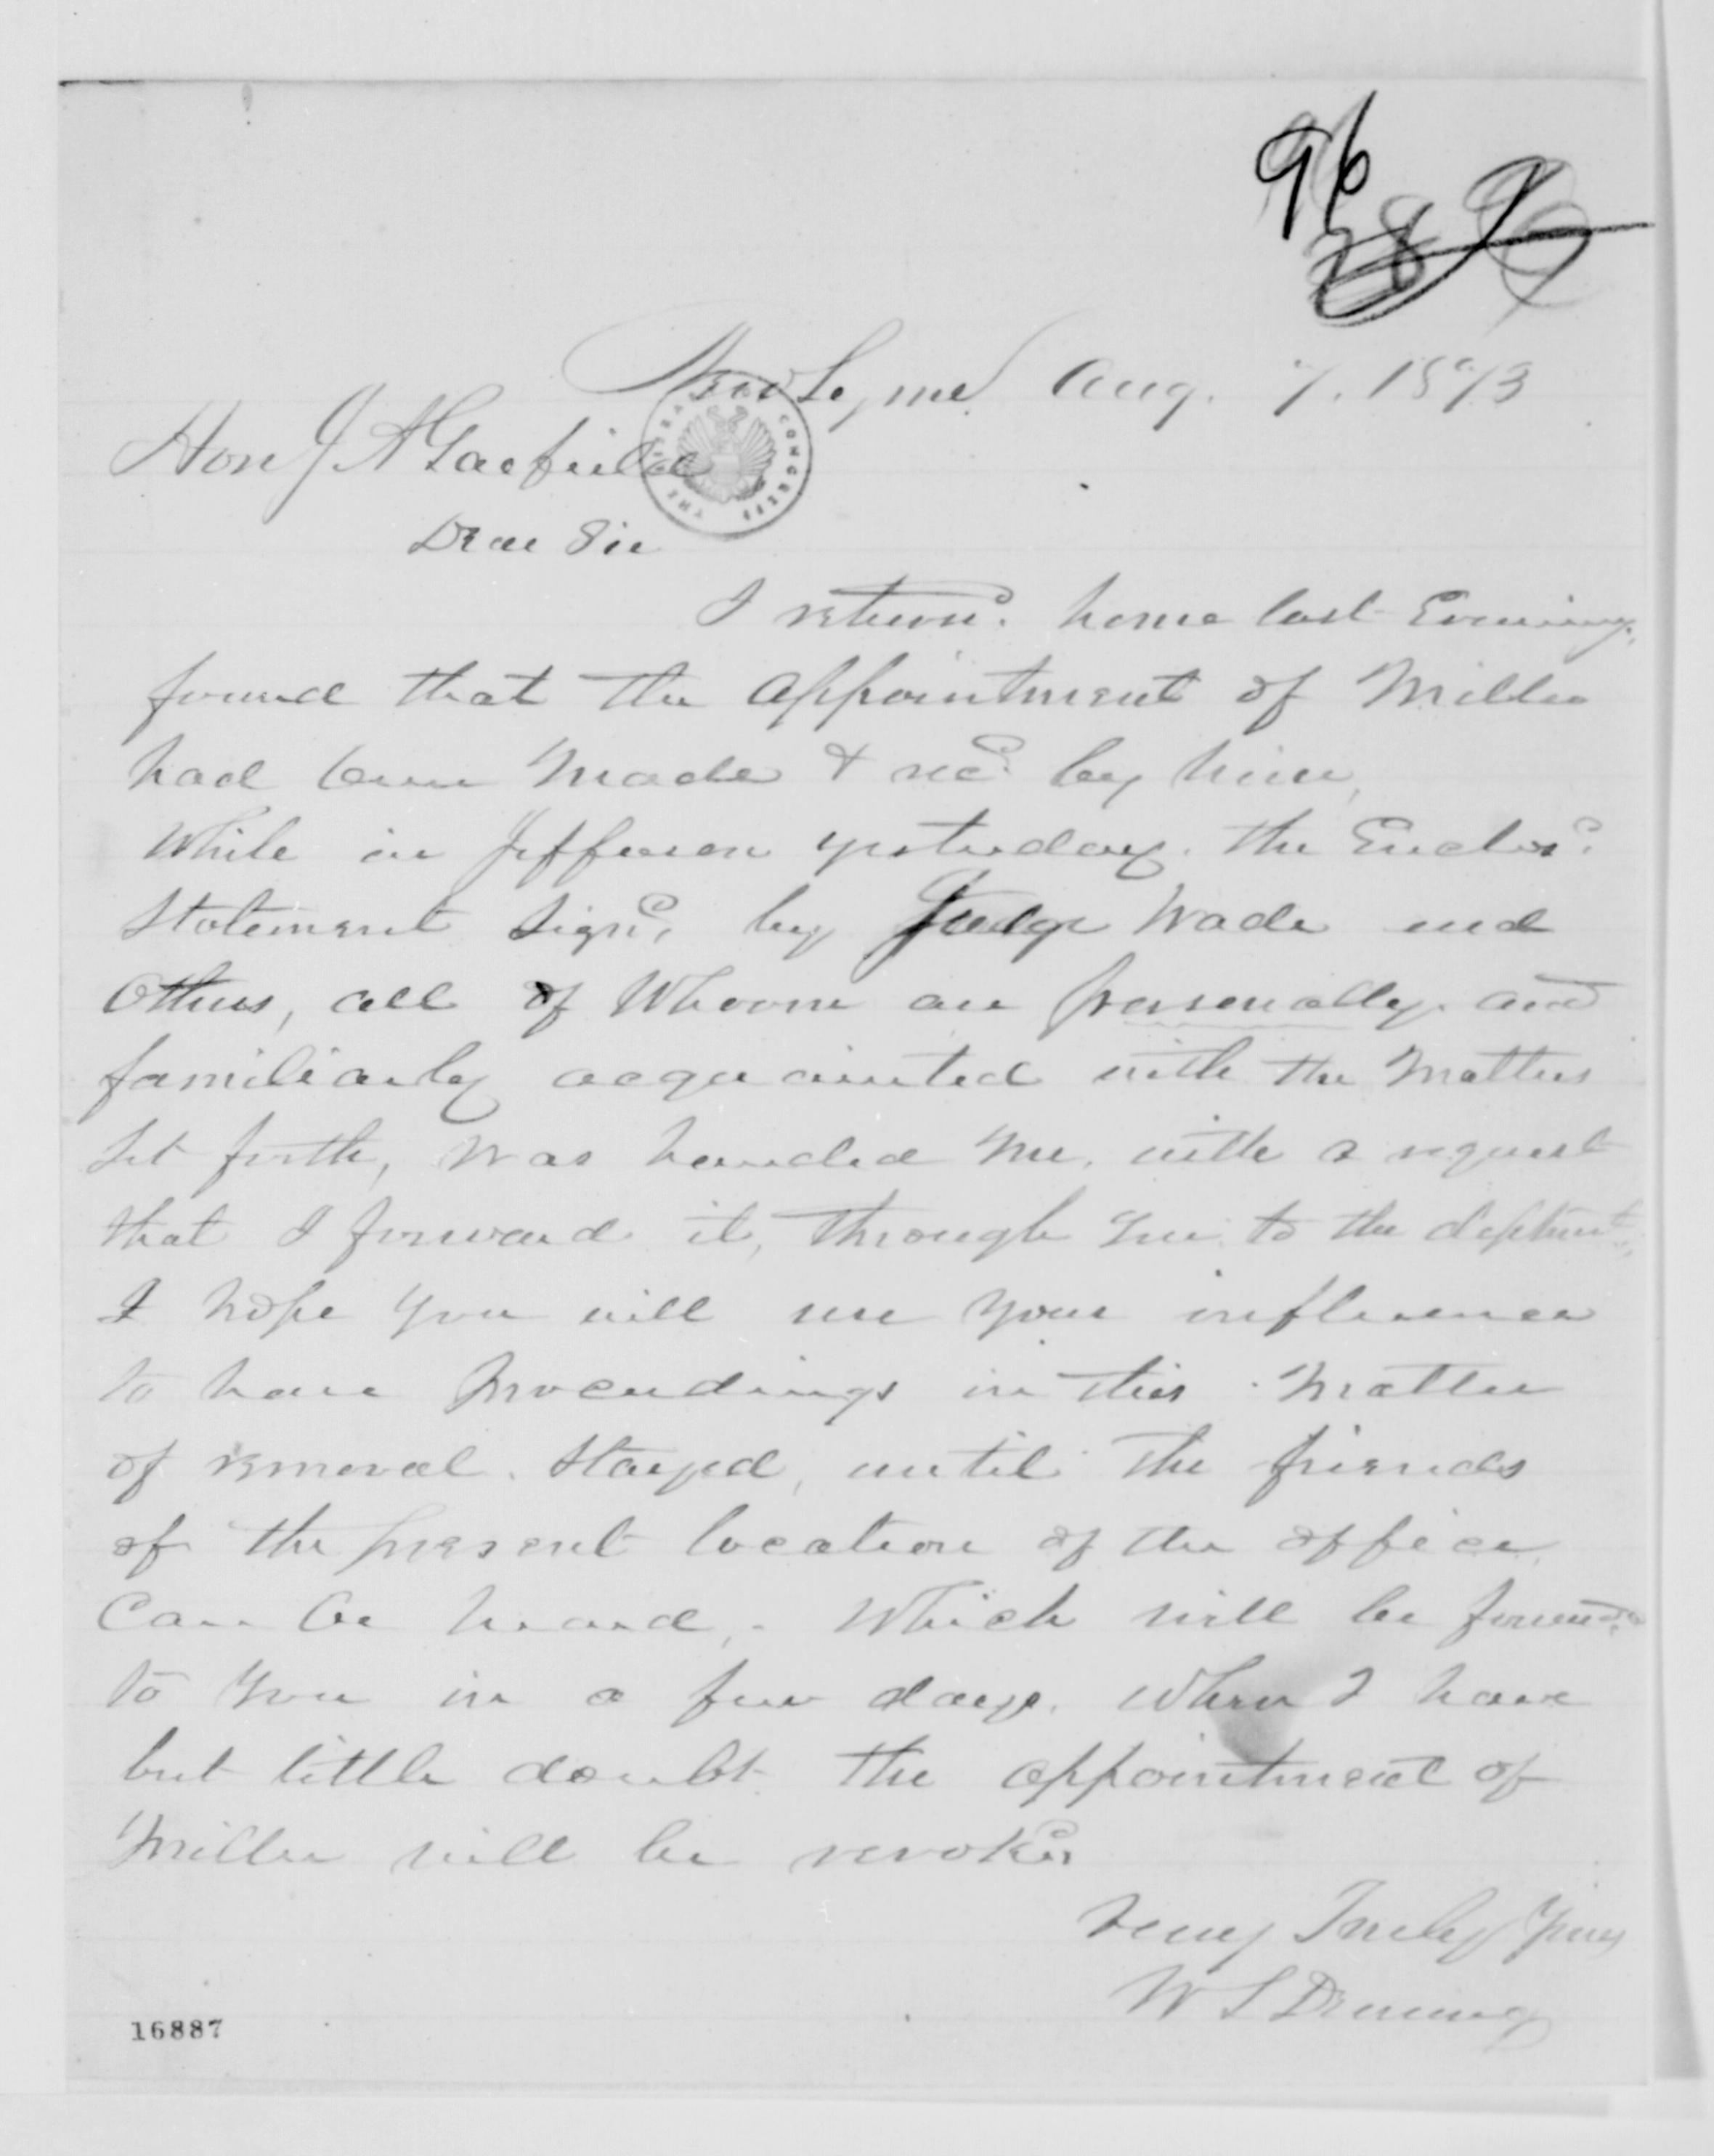 96
New Lyme Aug. 7. 1873
Hon J A Garfield
THE LIBRARY OF CONGRESS
Dear Sir
I returnd. home last Evening.
found that the appointment of Miller
had been made & recd. by him,
While in Jefferson yesterday. the Enclosd.
statement signd, by Judge Wade and
others, all of whoom are personally. and
familiarly acquainted with the matters
set forth, was handed me. with a request
that I forward it, through you to the deptmnt.
I hope you will use your influence
to have proceedings in this matter
of removal. stayed, until the friends
of the present location of the office
can be heard,. which will be forwd.
to you in a few days. when I have
but little doubt the appointment of
Miller will be revokd
Very Truly Yours
W S Deming
16887